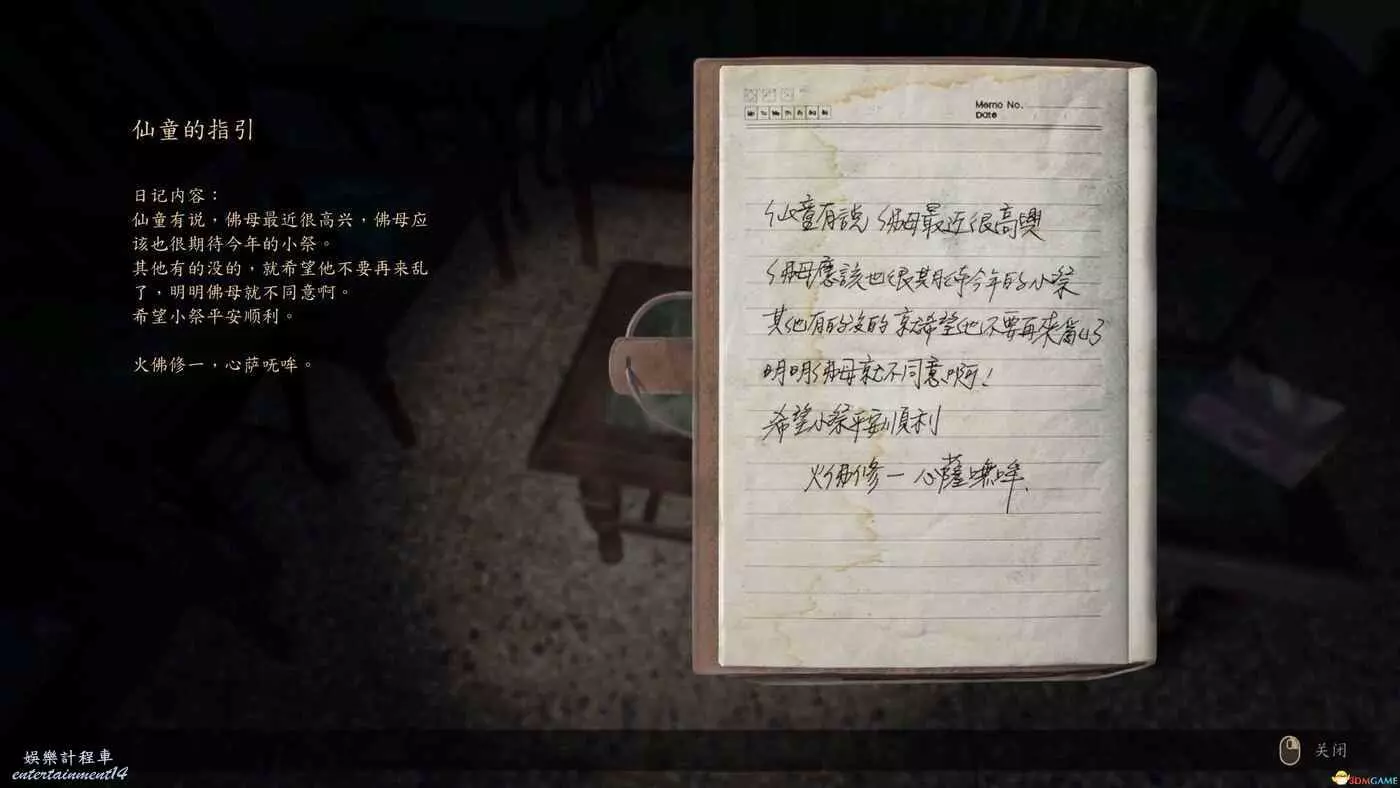 仙童的指引
日记内容：
仙童有说，佛母最近很高兴，佛母应
该也很期待今年的小祭。
其他有的没的，就希望他不要再来乱
了，明明佛母就不同意啊。
希望小祭平安顺利。
火佛修一，心萨呒哞。
Memo No.
Date
仙童有說 佛母最近很高興
佛母應該也很期待今年的小祭
其他有的沒的 就希望他不要再來亂了
明明佛母就不同意啊！
希望小祭平安順利
火佛修一 心薩嘸哞.
关闭
娛樂計程車
entertainment14
3DMGAME